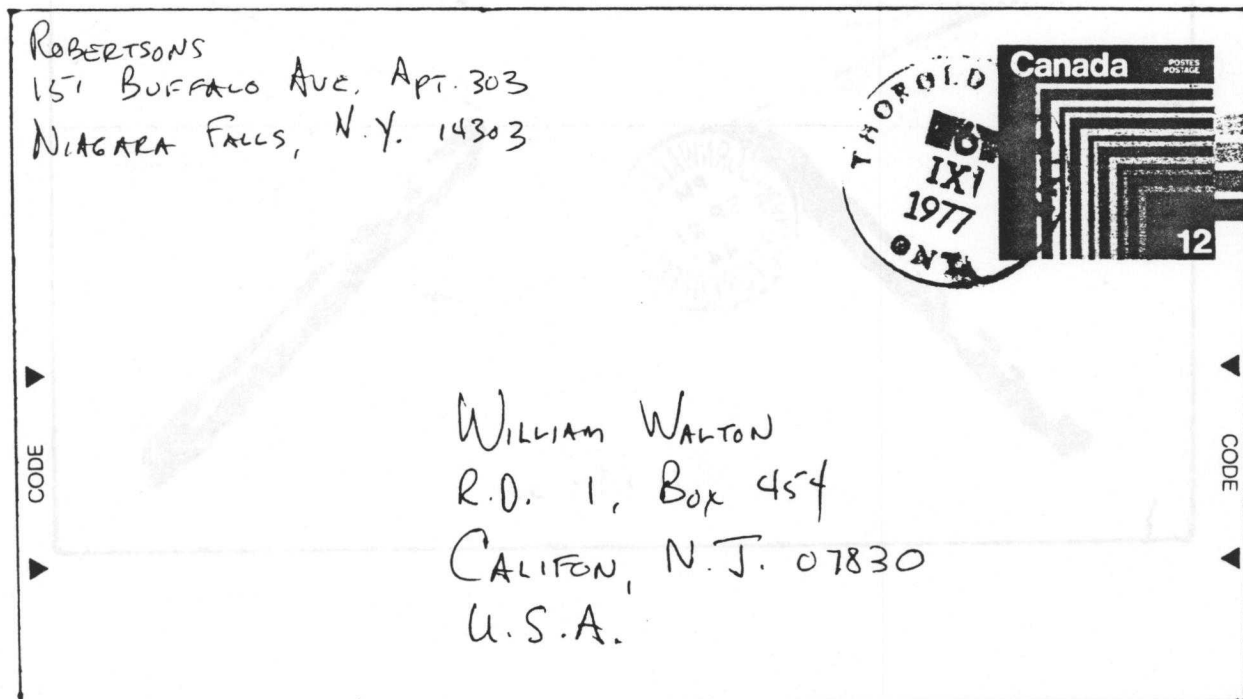 ROBERTSONS
151 BUFFALO AVE. APT. 303
NIAGARA FALLS, N.Y. 14303
THOROLD
6
IX
1977
ONT
Canada
POSTES
POSTAGE
12
CODE
CODE
WILLIAM WALTON
R.D. 1, BOX 454
CALIFON, N.J. 07830
U.S.A.